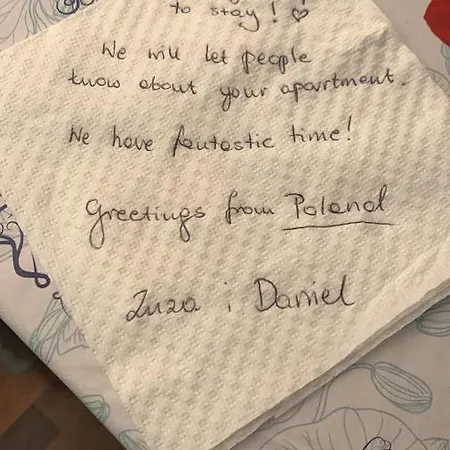 to stay! ♡
We will let people
know about your apartment.
We have fantastic time!
Greetings from Poland
Zuza i Daniel